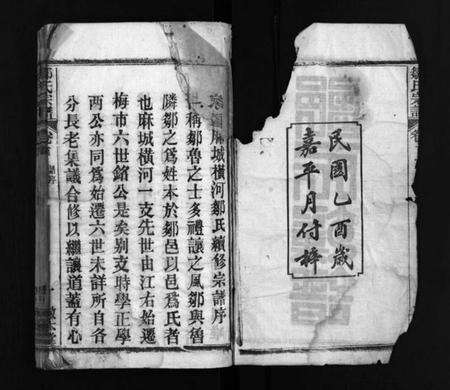 民國乙酉歲
嘉平月付梓
麻城橫河鄒氏續修宗譜序
稱鄒魯之士多禮讓之風鄒與魯
隣鄒之爲姓本於鄒邑以邑爲氏者
也麻城橫河一支先世由江右始遷
梅市六世錯公是矣别支時學正學
兩公亦同爲始遷六世未詳所自各
分長老集議合修以繼議道蓋有心